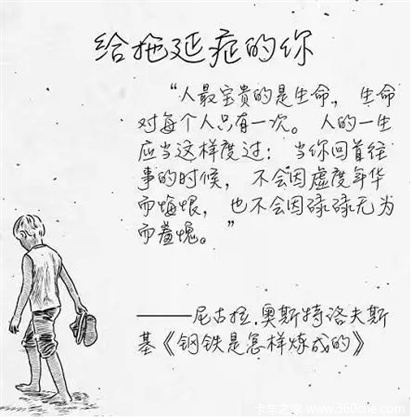 给拖延症的你
“人最宝贵的是生命，生命
对每个人只有一次。人的一生
应当这样度过：当你回首往
事的时候，不会因虚度年华
而悔恨，也不会因碌碌无为
而羞愧。”
——尼古拉.奥斯特洛夫斯
基《钢铁是怎样炼成的》
卡车之家 www.360che.com